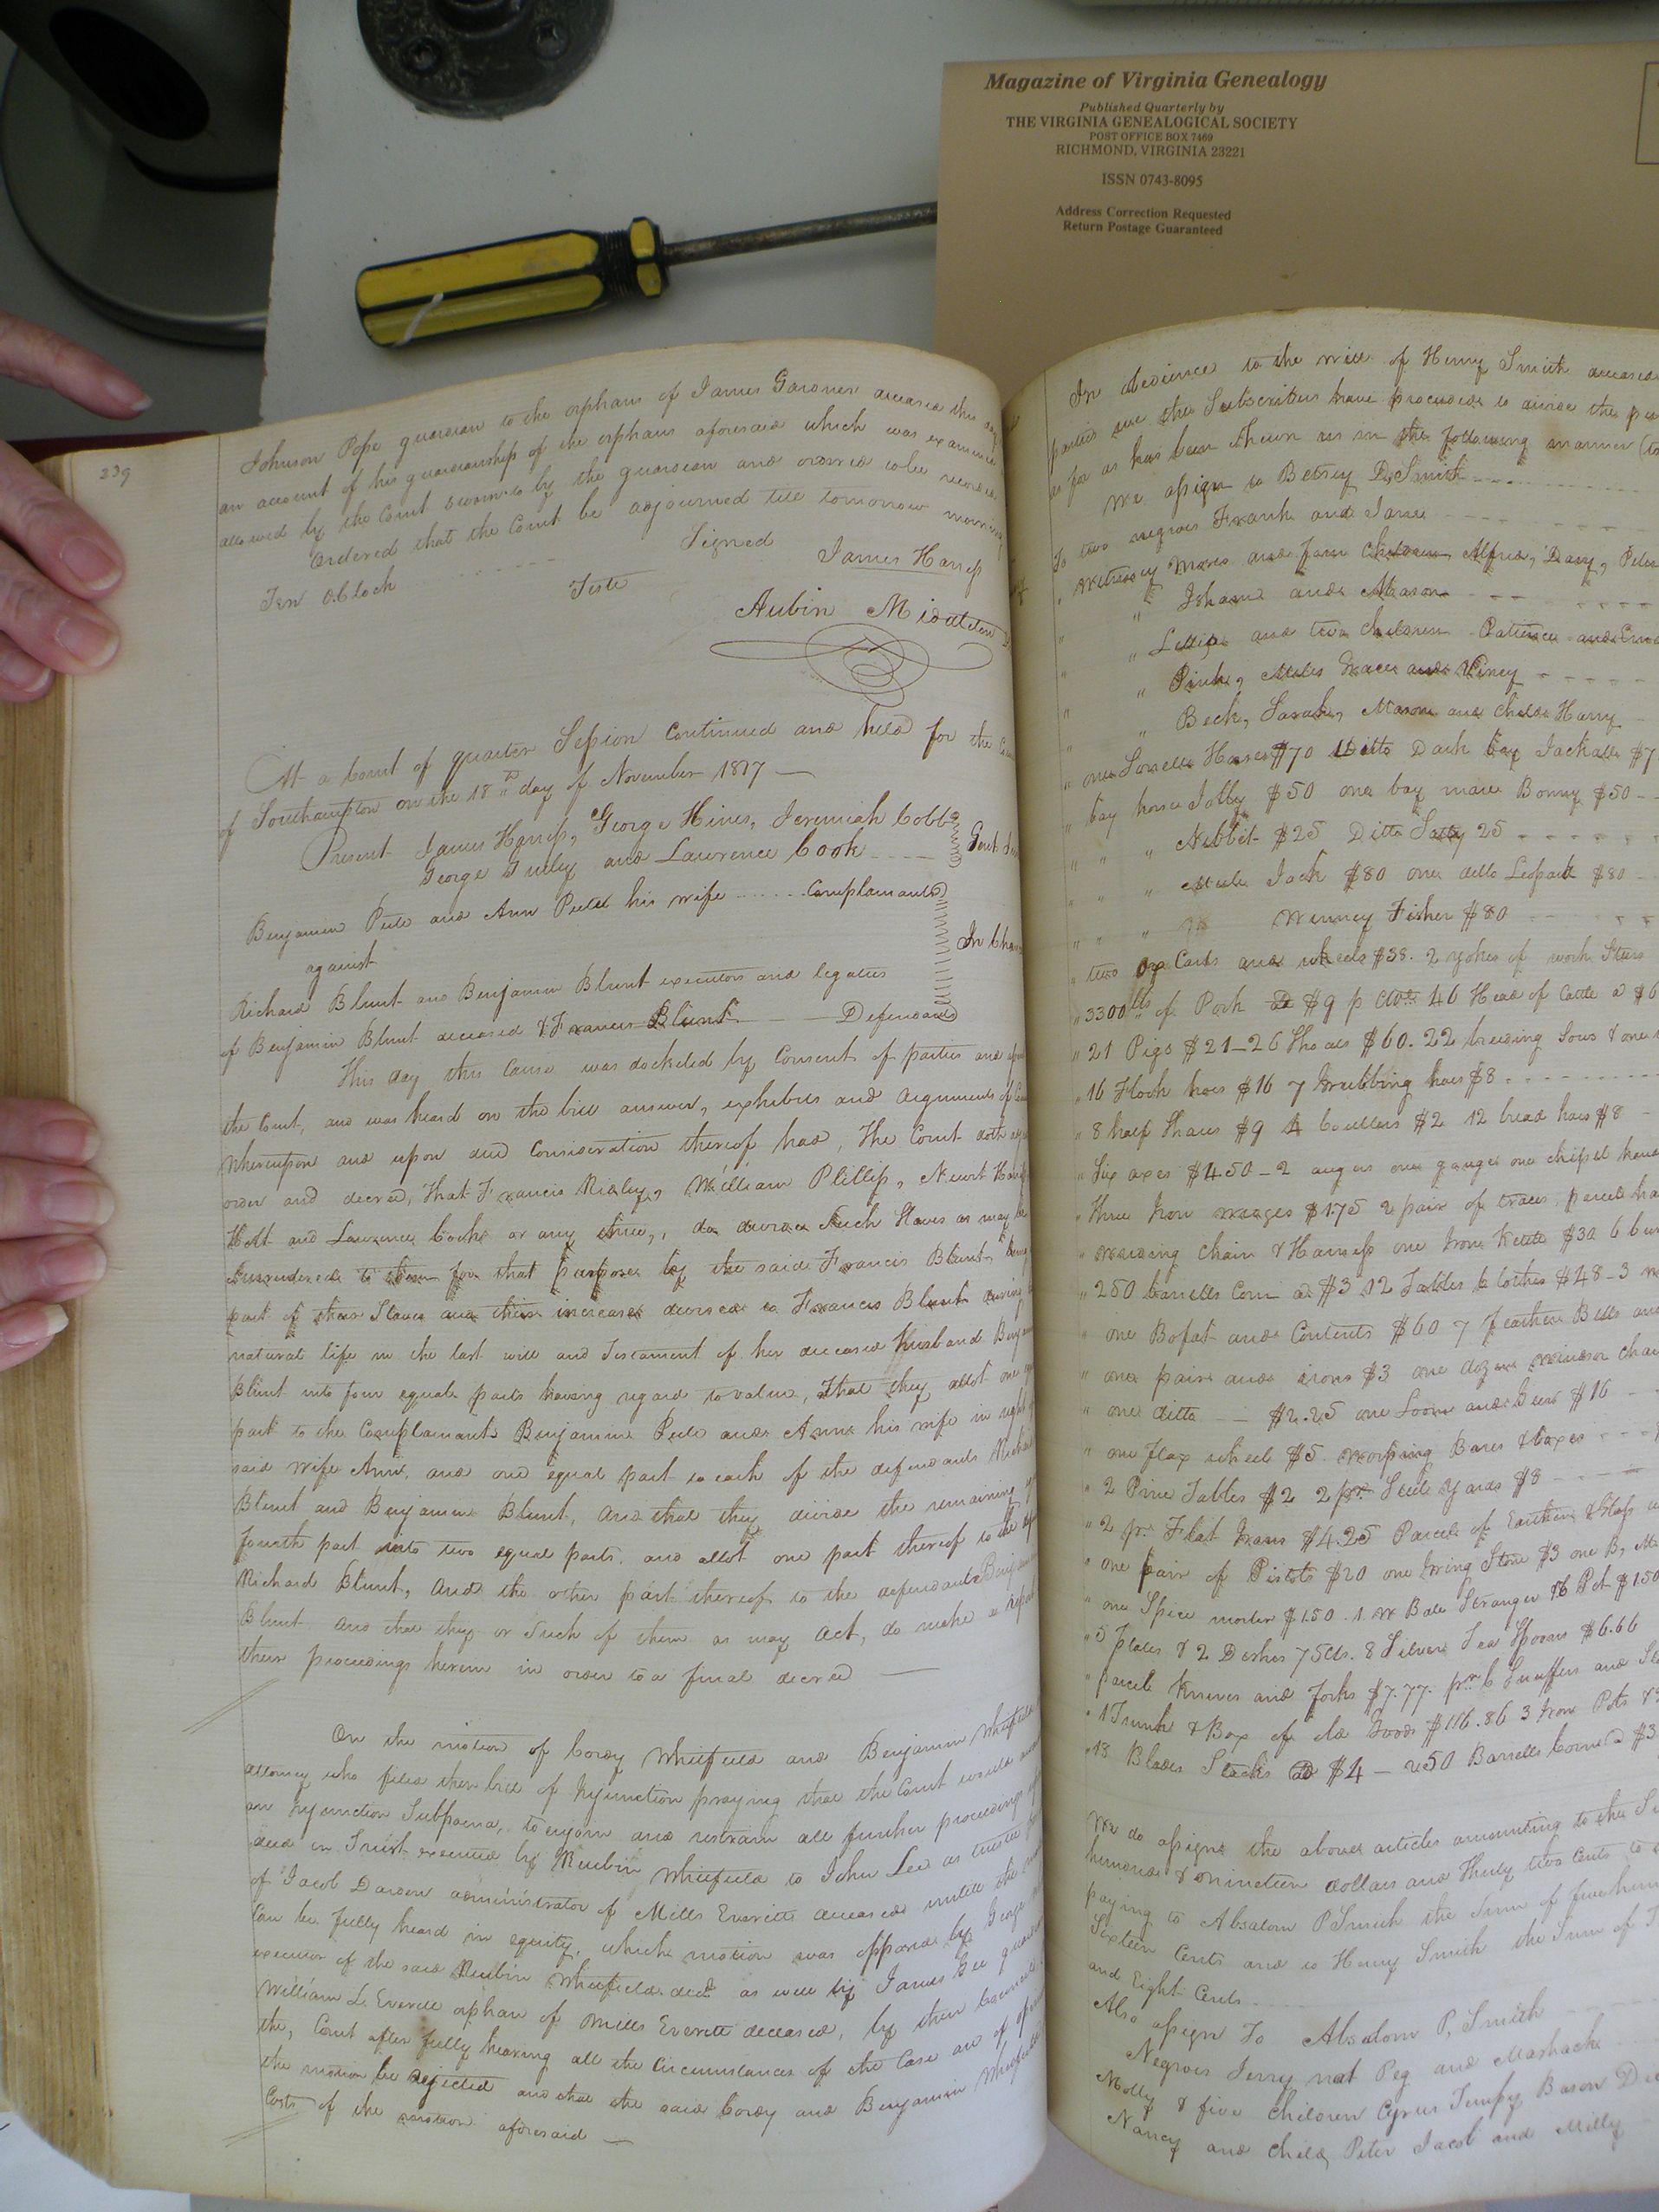 Magazine of Virginia Genealogy
Published Quarterly by
THE VIRGINIA GENEALOGICAL SOCIETY
POST OFFICE BOX 7469
RICHMOND, VIRGINIA 23221
ISSN 0743-8095
Address Correction Requested
Return Postage Guaranteed
239
Johnson Pope guardian to the orphans of James Gardner deceased this day
an account of his guardianship of the orphans aforesaid which was examined
allowed by the Court sworn to by the guardian and ordered to be recorded
Ordered that the Court be adjourned till tomorrow morning
Ten OClock
Signed
James Harriss
Teste
At a Court of quarter Session Continued and held for the
of Southampton on the 18th day of November 1817
Present James Harriss, George Hines, Jeremiah Cobb
George Gurley and Lawrence Cook Gent
Benjamin Peete and Ann Peete his wife Complainants
against
In Chan
Richard Blunt and Benjamin Blunt executors and legatees
of Benjamin Blunt deceased & Frances Blunt Defendants
This day this Cause was docketed by Consent of parties and
the Court, and was heard on the bill answer, exhibits and arguments of
Whereupon and upon due Consideration thereof had, The Court doth
order and decree, That Francis Ridley, William Phillips, Newit Harris
Holt and Lawrence Cooke or any three, do divide Such Slaves as may be
Surrendered to them for that purpose by the said Frances Blunt being
part of their Slaves and their increase devised to Frances Blunt during
natural life in the last will and Testament of her deceased husband Benjamin
Blunt into four equal parts having regard to value, That they allot one
part to the Complainants Benjamin Peete and Anne his wife in right
said wife Ann, and one equal part to each of the defendants Richard
Blunt and Benjamin Blunt, and that they divide the remaining
fourth part into two equal parts, and allot one part thereof to the
Richard Blunt, and the other part thereof to the defendant Benjamin
Blunt and that they or Such of them as may act, do make a report
their proceedings herein in order to a final decree
On the motion of Cordy Whitfield and Benjamin Whitfield
attorney who filed their bill of Injunction praying that the Court would
an Injunction Subpoena, to enjoin and restrain all further proceedings
deed in Trust executed by Reubin Whitfield to John Lee as trustee
of Jacob Darden administrator of Mills Everitt deceased untill the
Can be fully heard in equity, which motion was opposed by George
executor of the said Reubin Whitfield decd as well by James Gee
William L Everett orphan of Mills Everett deceased, by their Counsel
the, Court after fully hearing all the Circumstances of the Case are of
the motion be rejected and that the said Cordy and Benjamin Whitfield
Costs of the motion aforesaid
In obedience to the will of Henry Smith deceased
parties we the Subscribers have proceeded to divide the
so far as has been shewn us in the following manner
We assign to Betsey D. Smith
To two negroes Frank and Jane
" and four Children Alfred, Davy, Peter
" " Isham and Mason
" " and two children Patience and
" " Pink, Miles Grace and Viney
" " Beck, Sarah, Mason and Child Harry
" one Sorrell Horse $70 Ditto Dark bay Jackall $7
" bay horse Jolly $50 one bay mare Bonny $50
" " " $25 Ditto 25
" " " Mule Jack $80 one ditto Leopard $80
" " " Fisher $80
" two Ox Carts and wheels $38. 2 yokes of work Steers
" 3300 lbs of Pork @ $9 46 Head of Cattle @ $6
" 21 Pigs $21 - 26 Shoats $60. 22 breeding Sows & one
" 16 hoes $16 7 Grubbing hoes $8
" 8 half Shares $9 4 Coulters $2 12 broad hoes $8
" Six axes $4.50 - 2 augers one gauge one chisel
" three Iron wedges $1.75 2 pair of traces, parcel
" Chain & Harness one Iron Kettle $30 6
" 250 barrells Corn @ $3 12 Tables Cloths $48 - 3
" one Bofat and Contents $60 7 feather Beds and
" one pair and irons $3 one dozen windsor chairs
" one ditto $2.25 one Loom and Gear $16
" one Flax wheel $5 Warping Bars & boxes
" 2 Pine Tables $2 2 pr Steel Yards $8
" 2 pr Flat Irons $4.25 Parcel of Earthen & Glass
" one pair of Pistols $20 one Grind Stone $3 one
" one Spice morter $1.50
" 5 plates & 2 Dishes 75 Cts. 8 Silver Tea Spoons $6.66
" parcel Knives and forks $7.77 Snuffers and
" 1 Trunk & Box of old Goods $116.86 3 Iron Pots
" 13 Blades Stacks @ $4 - 250 Barrells Corn @ $3
We do assign the above articles amounting to the
hundred & nineteen dollars and Thirty two Cents to
paying to Absalom P Smith the Sum of five
Sixteen Cents and to Henry Smith the Sum of
and Eight Cents
Also assign To Absalom P. Smith
Negroes Jerry Peg and
Molly & five Children Cyrus Tempy Bason
Nancy and Child, Peter Jacob and Milly